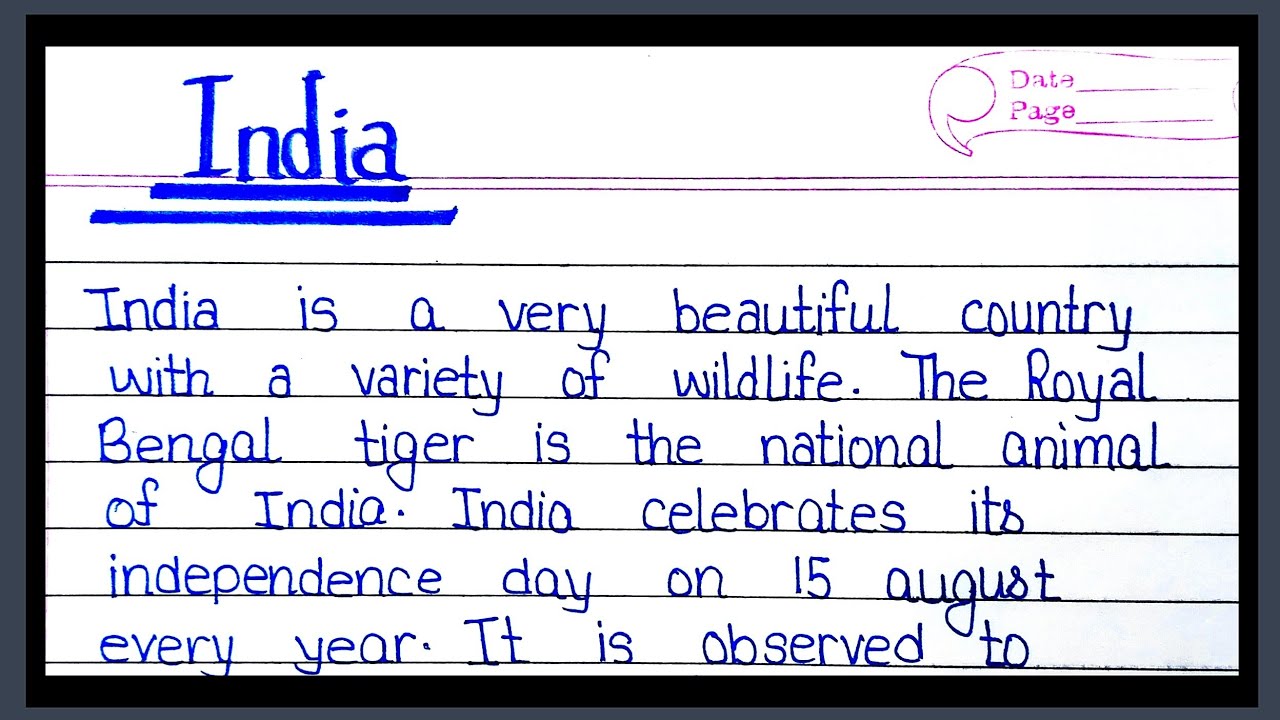 India
Date
Page
India is a very beautiful country
with a variety of wildlife. The Royal
Bengal tiger is the national animal
of India. India celebrates its
independence day on 15 august
every year. It is observed to